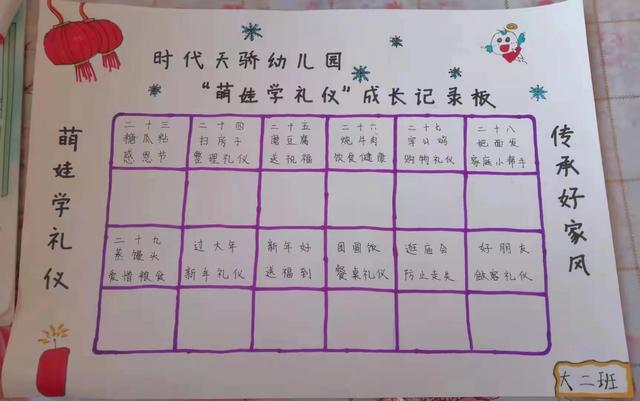 时代天骄幼儿园
“萌娃学礼仪”成长记录板
萌娃学礼仪
二十三
糖瓜粘
感恩节
二十四
扫房子
整理礼仪
二十五
磨豆腐
送祝福
二十六
炖牛肉
饮食健康
二十七
购物礼仪
二十八
把面发
家庭小帮手
二十九
蒸馒头
爱惜粮食
过大年
新年礼仪
新年好
送福到
团圆饭
餐桌礼仪
逛庙会
防止走失
好朋友
做客礼仪
传承好家风
大二班